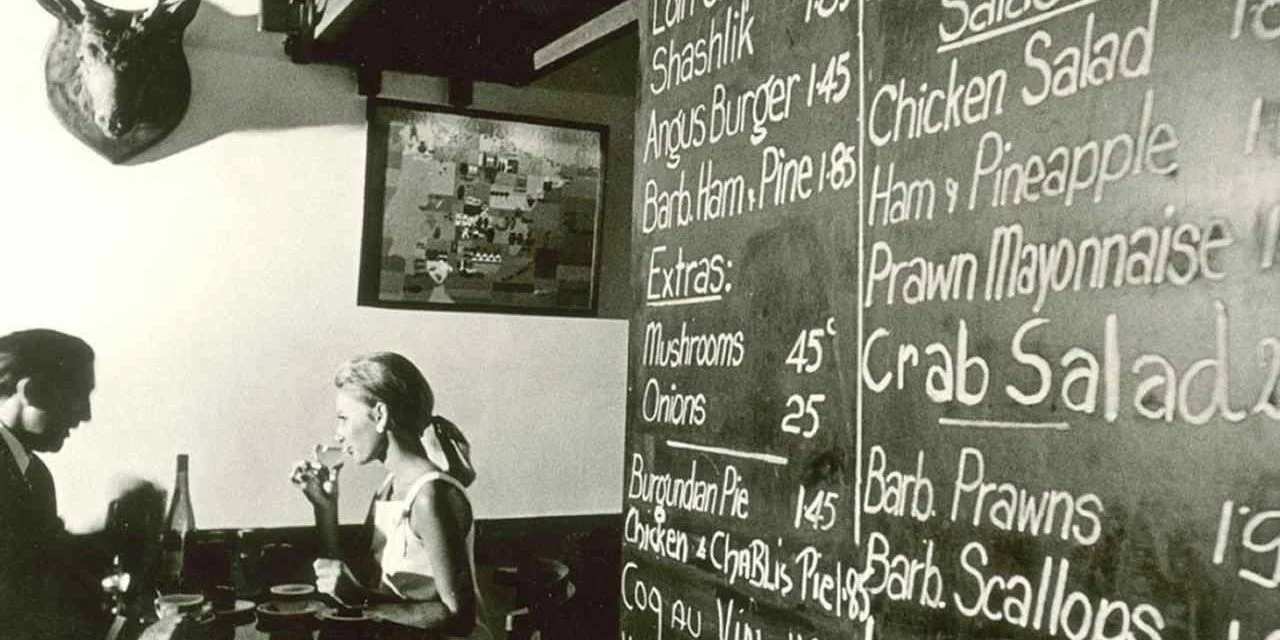 Shashlik
Angus Burger 1·45
Barb. Ham & Pine 1·85
Extras:
Mushrooms 45c
Onions 25
Burgundian Pie 1·45
Chicken & ChABLis Pie 1·85
Coq AU Vin
Salad
Chicken Salad
Ham & Pineapple
Prawn Mayonnaise
Crab Salad 2
Barb. Prawns 1·9
Barb. Scallops